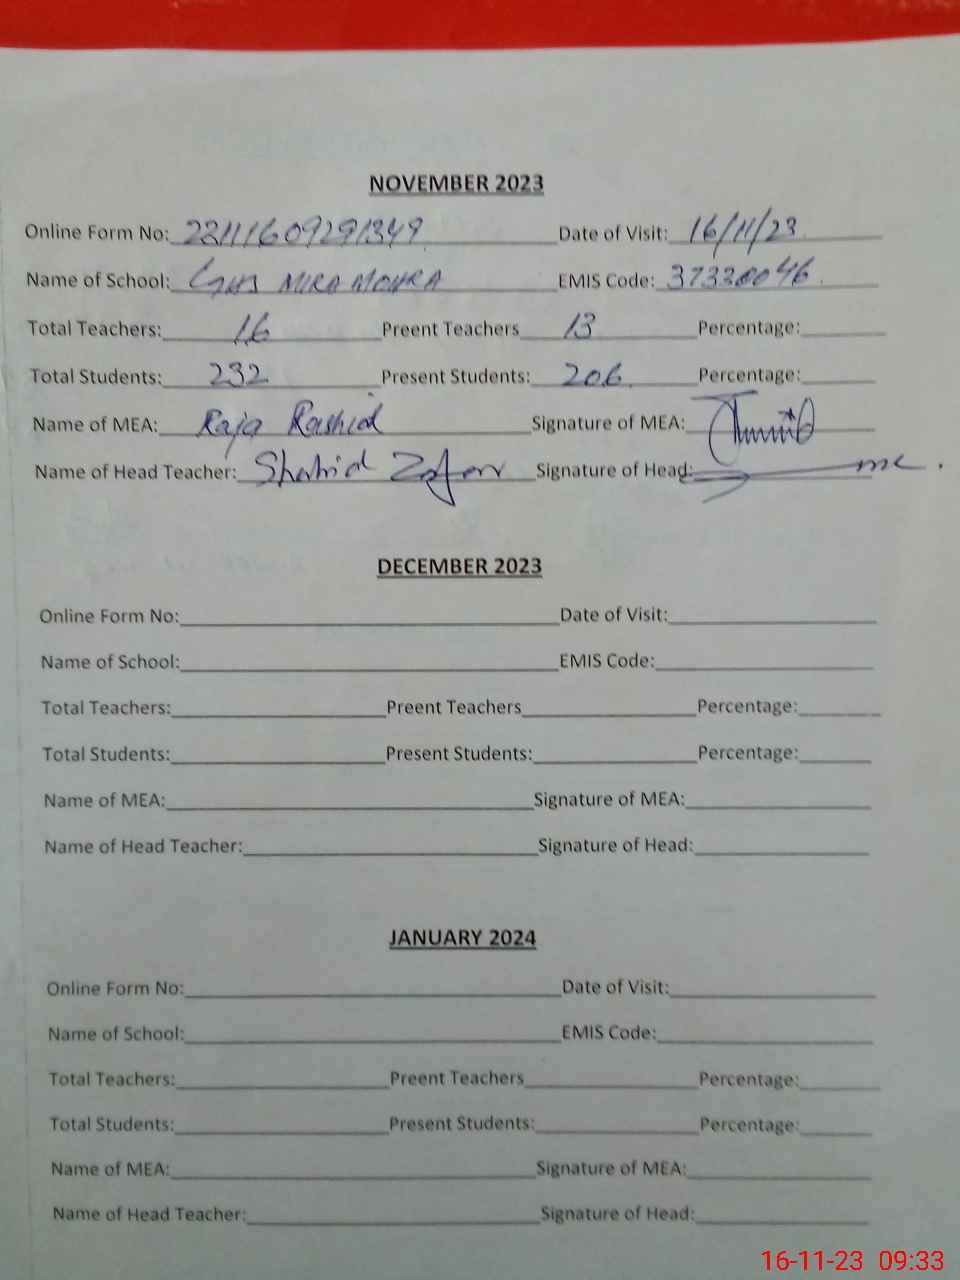 NOVEMBER 2023
Online Form No: 23111609291349 Date of Visit: 16/11/23
Name of School: GHS MIRA MOHRA EMIS Code: 37330046
Total Teachers: 16 Preent Teachers 13 Percentage:
Total Students: 232 Present Students: 206 Percentage:
Name of MEA: Raja Rashid Signature of MEA:
Name of Head Teacher: Shahid Zafar Signature of Head:
DECEMBER 2023
Online Form No: Date of Visit:
Name of School: EMIS Code:
Total Teachers: Preent Teachers Percentage:
Total Students: Present Students: Percentage:
Name of MEA: Signature of MEA:
Name of Head Teacher: Signature of Head:
JANUARY 2024
Online Form No: Date of Visit:
Name of School: EMIS Code:
Total Teachers: Preent Teachers Percentage:
Total Students: Present Students: Percentage:
Name of MEA: Signature of MEA:
Name of Head Teacher: Signature of Head:
16-11-23 09:33